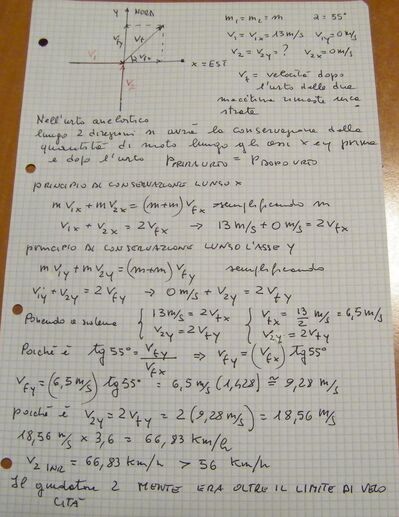 y NORD
m₁ = m₂ = m   α = 55°
v₁ = v₁ₓ = 13 m/s   v₁y = 0 m/s
v₂ = v₂y = ?   v₂ₓ = 0 m/s
x = EST
v_f = velocità dopo
l'urto delle due
macchine rimaste inca
strate
Nell'urto anelastico
lungo 2 direzioni si avrà la conservazione della
quantità di moto lungo gli assi x e y prima
e dopo l'urto P PRIMA URTO = P DOPO URTO
PRINCIPIO DI CONSERVAZIONE LUNGO X
m v₁ₓ + m v₂ₓ = (m+m) v_fx → semplificando m
v₁ₓ + v₂ₓ = 2 v_fx → 13 m/s + 0 m/s = 2 v_fx
PRINCIPIO DI CONSERVAZIONE LUNGO L'ASSE Y
m v₁y + m v₂y = (m+m) v_fy semplificando
v₁y + v₂y = 2 v_fy → 0 m/s + v₂y = 2 v_fy
Ponendo a sistema { 13 m/s = 2 v_fx { v_fx = 13/2 m/s = 6,5 m/s
v₂y = 2 v_fy   v₂y = 2 v_fy
Poiché è tg 55° = v_fy/v_fx ⇒ v_fy = (v_fx) tg 55°
v_fy = (6,5 m/s) tg 55° = 6,5 m/s (1,428) ≅ 9,28 m/s
poiché è v₂y = 2 v_fy = 2 (9,28 m/s) = 18,56 m/s
18,56 m/s × 3,6 = 66,83 Km/h
v₂ INR = 66,83 Km/h > 56 Km/h
Il guidatore 2 MENTE ERA OLTRE IL LIMITE DI VELO
CITÀ